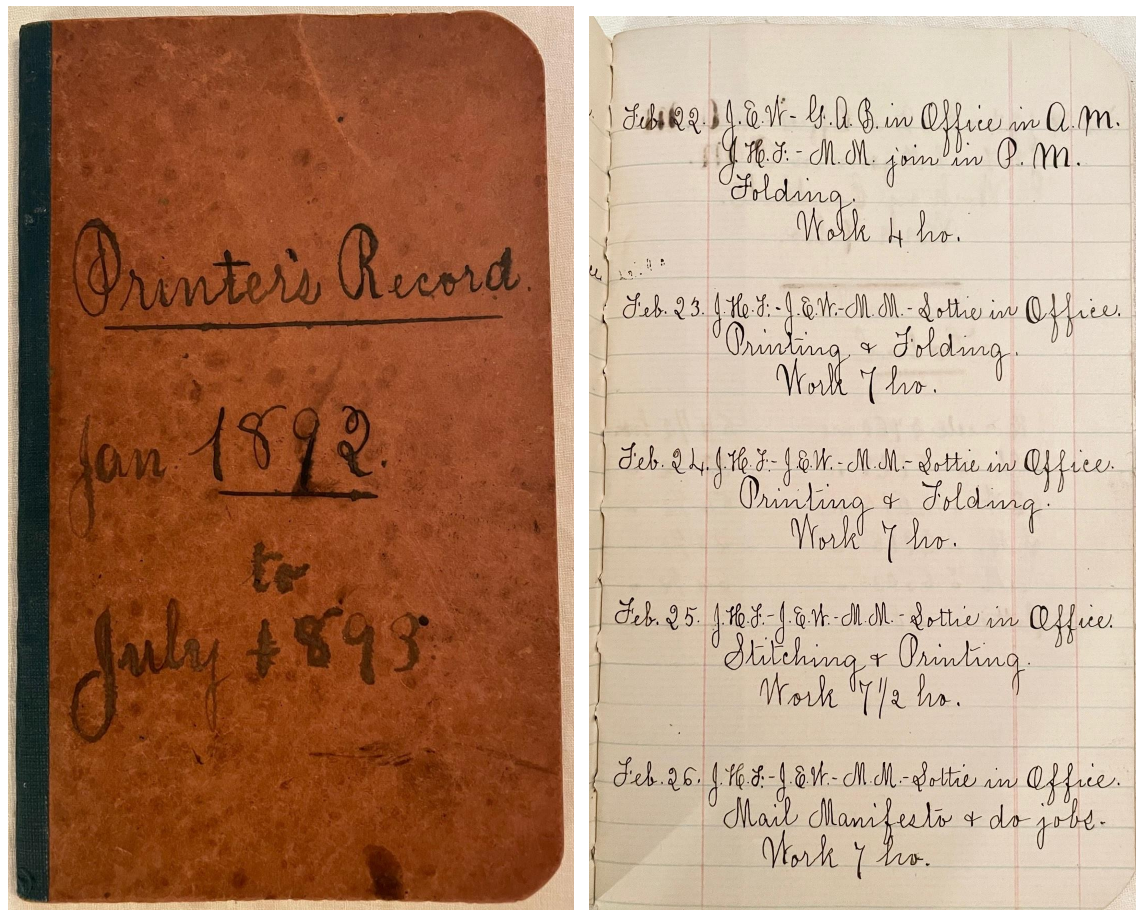 Printer's Record.
Jan 1892.
to
July 1893
Feb. 22. J.E.W- G.A.B. in Office in A.M.
J.H.F.- M.M. join in P.M.
Folding.
Work 4 ho.
Feb. 23. J.H.F.-J.E.W.-M.M.-Lottie in Office.
Printing & Folding.
Work 7 ho.
Feb. 24. J.H.F-J.E.W.-M.M.-Lottie in Office.
Printing & Folding.
Work 7 ho.
Feb. 25. J.H.F-J.E.W.-M.M.-Lottie in Office.
Stitching & Printing.
Work 7 1/2 ho.
Feb. 26. J.H.F-J.E.W.-M.M.-Lottie in Office.
Mail Manifesto & do jobs.
Work 7 ho.